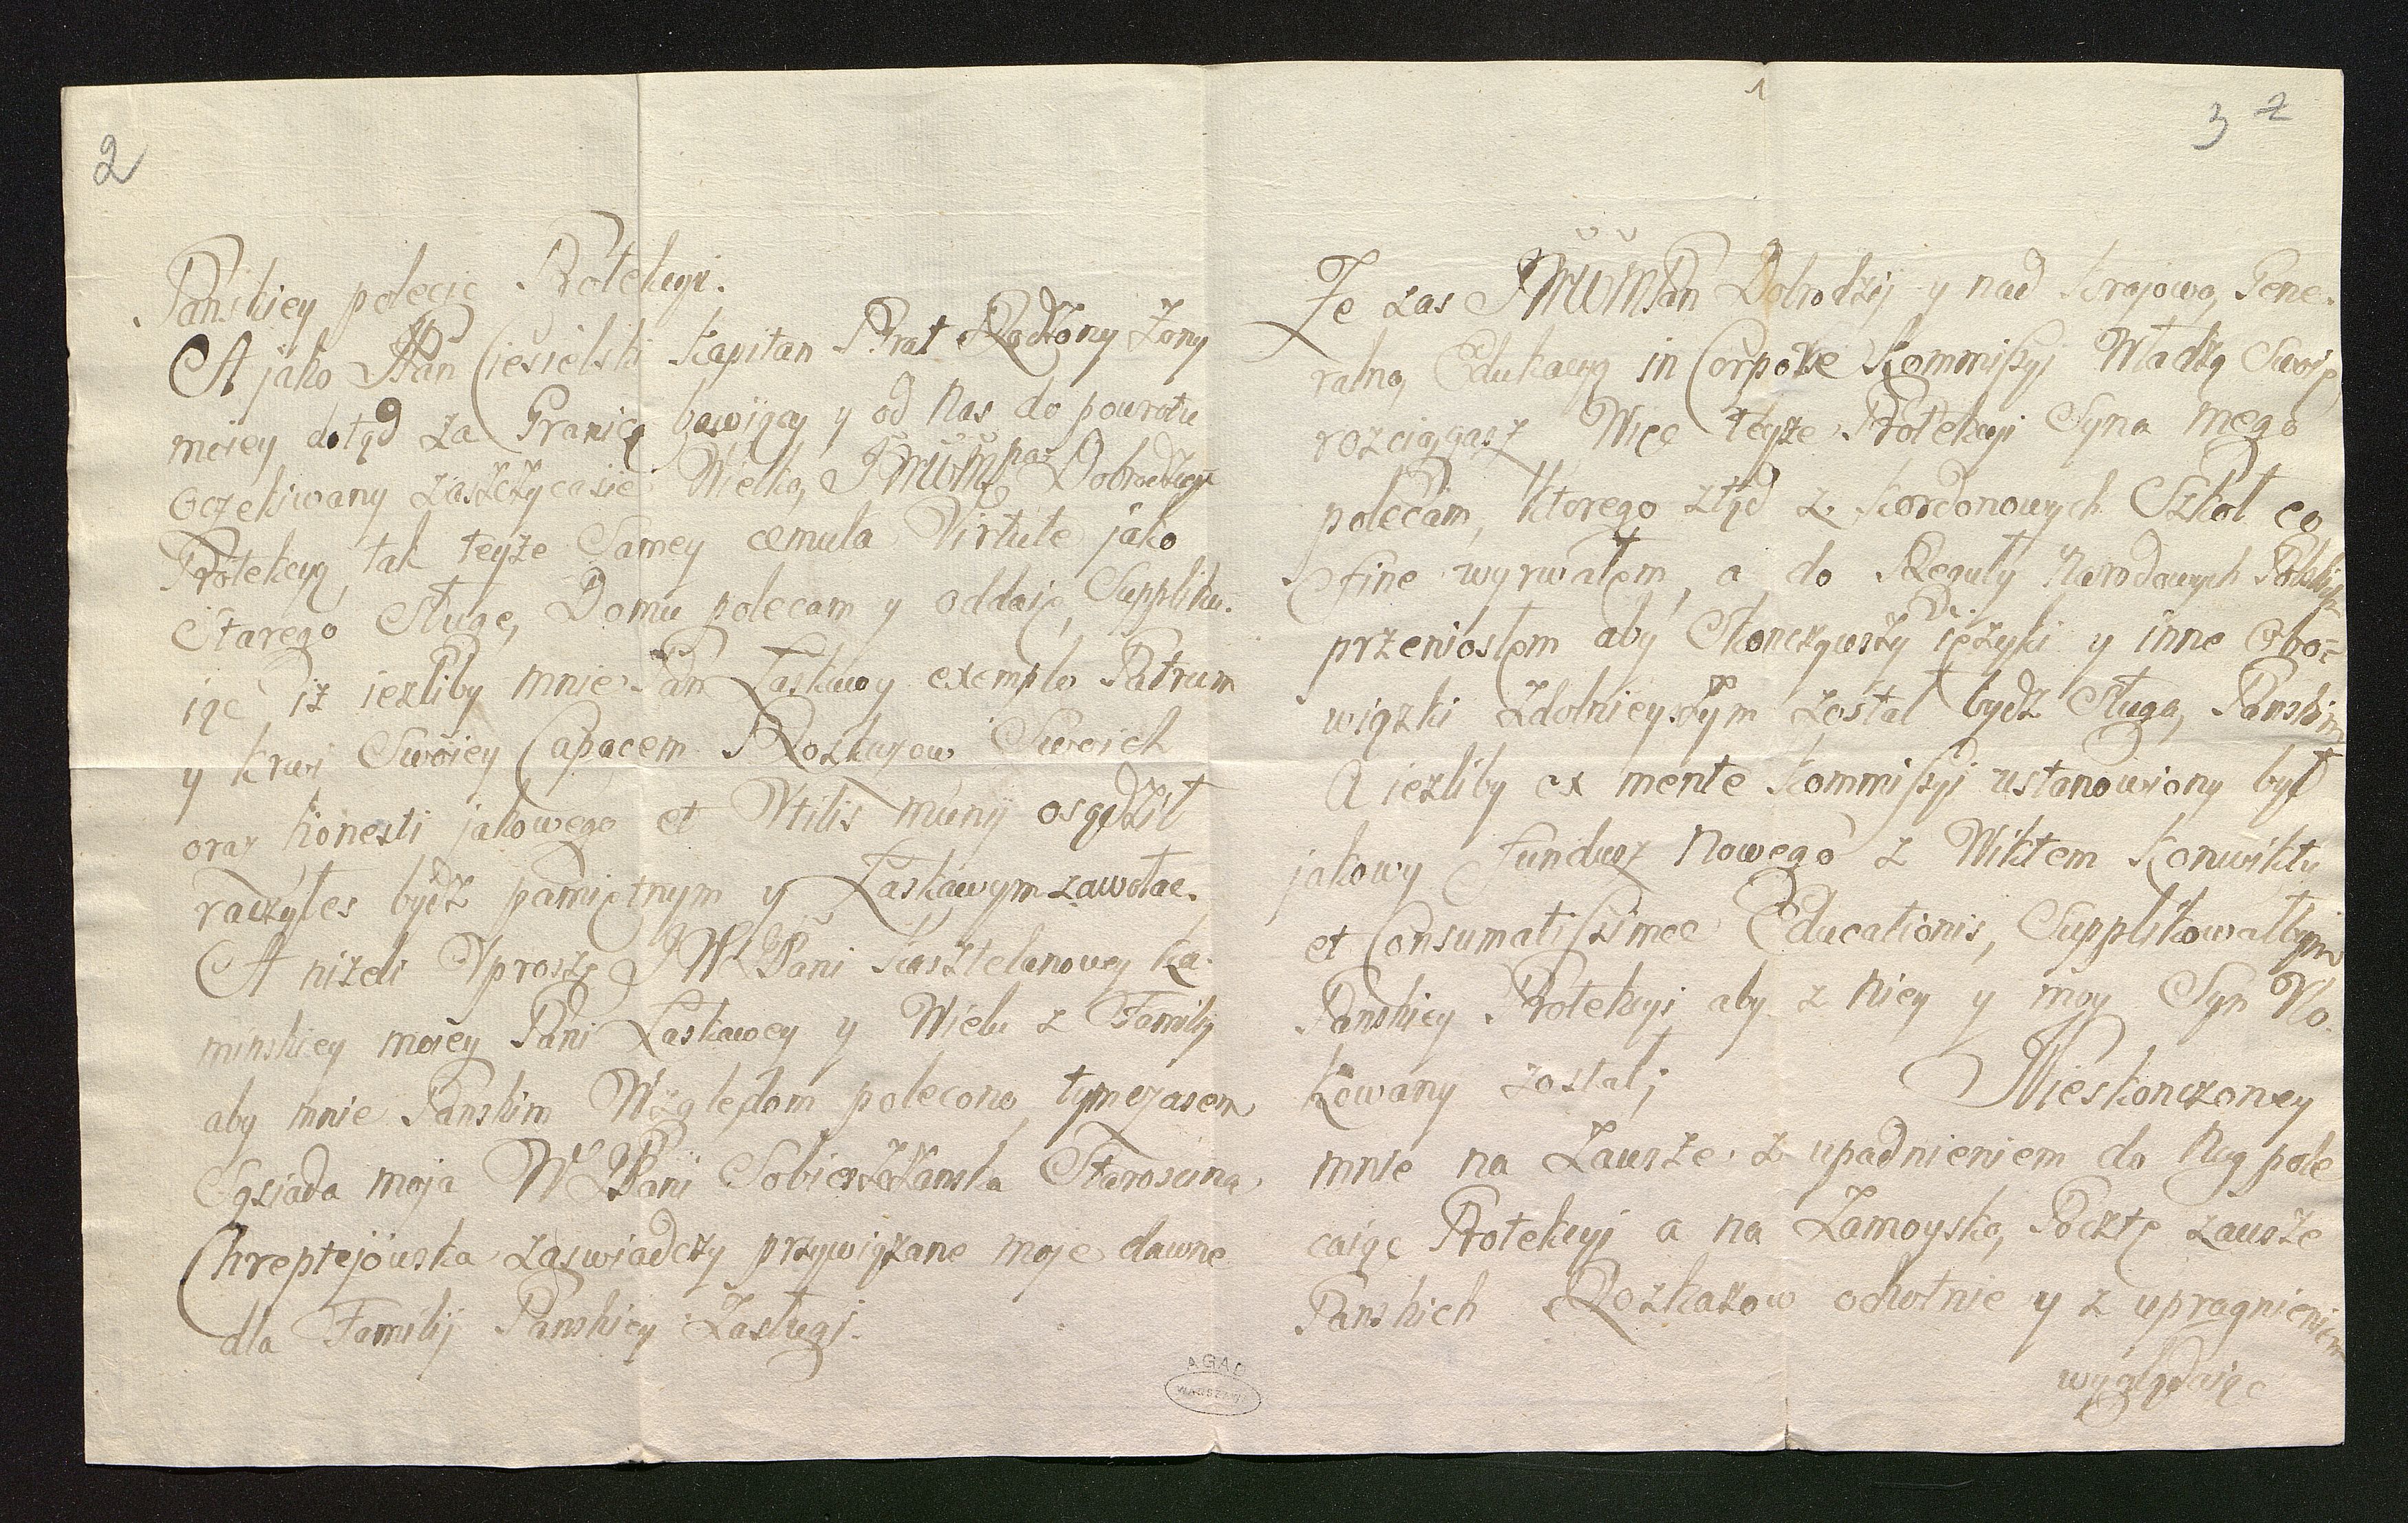 2
Panskiey polecię Protekcyi.
A jako JPan Ciesielski Kapitan Brat Rodzony Zony
moiey dotąd za Granicą bawiący y od nas do powrotu
Oczekiwany zaszczyca się Wielką JWWMPana Dobrodzieja
Protekcyą, tak teyże Samey æmula Virtute jako
Starego Sługę, Domu polecam y oddaię, Suppliku-
iąc iż iezliby mnie Pan Łaskawy exemplo Patrum
y krwi Swoiey Capacem Rozkazow Swoich
oraz honesti jakowego et Vtilis muny osądził
raczyłes bydz pamiętnym y Łaskawym zawołac.
A niżeli Vproszę JW JPani Kasztelanowey Ka-
minskiey moiey Pani Łaskawey y Wielu z Familij
aby mnie Panskim Względom polecono, tymczasem
Sąsiada moja W JPani Sobieszczanska Starościna
Chreptejowska zaswiadczy przywiązane moje dawne
dla Familij Panskiey Zasługi.
AGAD
WARSZAWA
1
3 2
Ze zas JWWMPan Dobrodziej y nad Krajową Gene-
ralną Edukacyą in Corpore Kommissyi Władzą Swoię
rozciągasz Więc teyże Protekcyi Syna mego
polecam, ktorego ztąd z Kordonowych Szkoł eo
fine wyrwałem, a do Reguły Narodowych Polskich
przeniosłem aby Skonczywszy ięzyki y inne Obo-
wiązki zdolnieyszym został bydz Sługą Panskim
A iezliby ex mente Kommissyi ustanowiony był
jakowy Fundusz Nowego z Wiktem Konwiktu
et Consumatissimæ Educationis, Supplikowałbym
Panskiey Protekcyi aby z niey y moy Syn Vlo-
kowany został;
Nieskonczoney
mnie na Zawsze z upadnieniem do Nog pole
caiąc Protekcyi a na Zamoyską Pocztę zawsze
Panskich Rozkazow ochotnie y z upragnieniem
wyglądaiąc